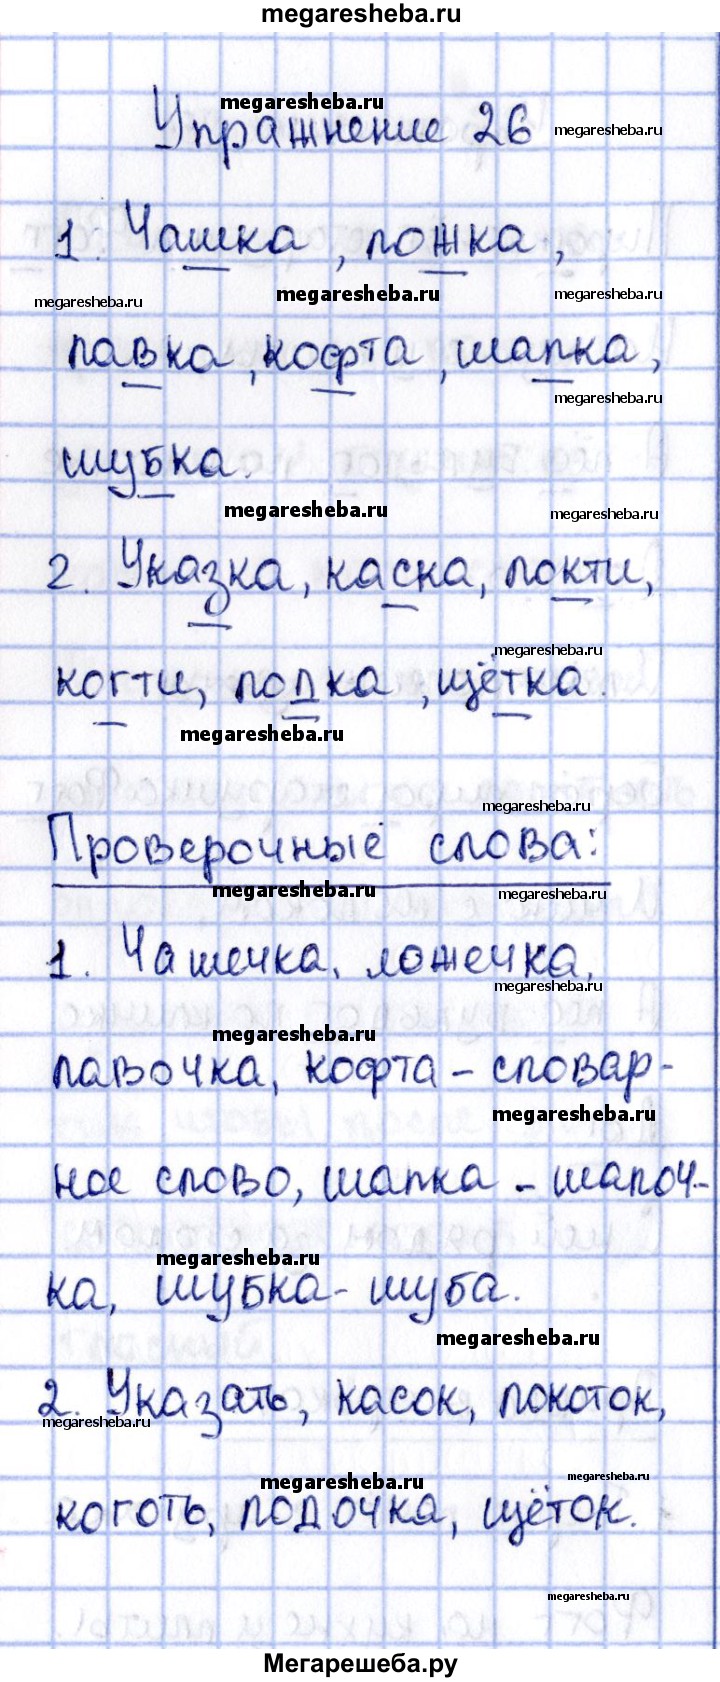 megaresheba.ru
megaresheba.ru
Упражнение 26
megaresheba.ru
1. Чашка, ложка,
megaresheba.ru
megaresheba.ru
megaresheba.ru
лавка, кофта, шапка,
megaresheba.ru
шубка.
megaresheba.ru
megaresheba.ru
2. Указка, каска, локти,
megaresheba.ru
когти, лодка, щётка.
megaresheba.ru
megaresheba.ru
Проверочные слова:
megaresheba.ru
megaresheba.ru
1. Чашечка, ложечка,
megaresheba.ru
megaresheba.ru
лавочка, кофта - словар-
megaresheba.ru
ное слово, шапка - шапоч-
megaresheba.ru
ка, шубка - шуба.
megaresheba.ru
2. Указать, касок, локоток,
megaresheba.ru
megaresheba.ru
megaresheba.ru
коготь, лодочка, щёток.
megaresheba.ru
Мегарешеба.ру